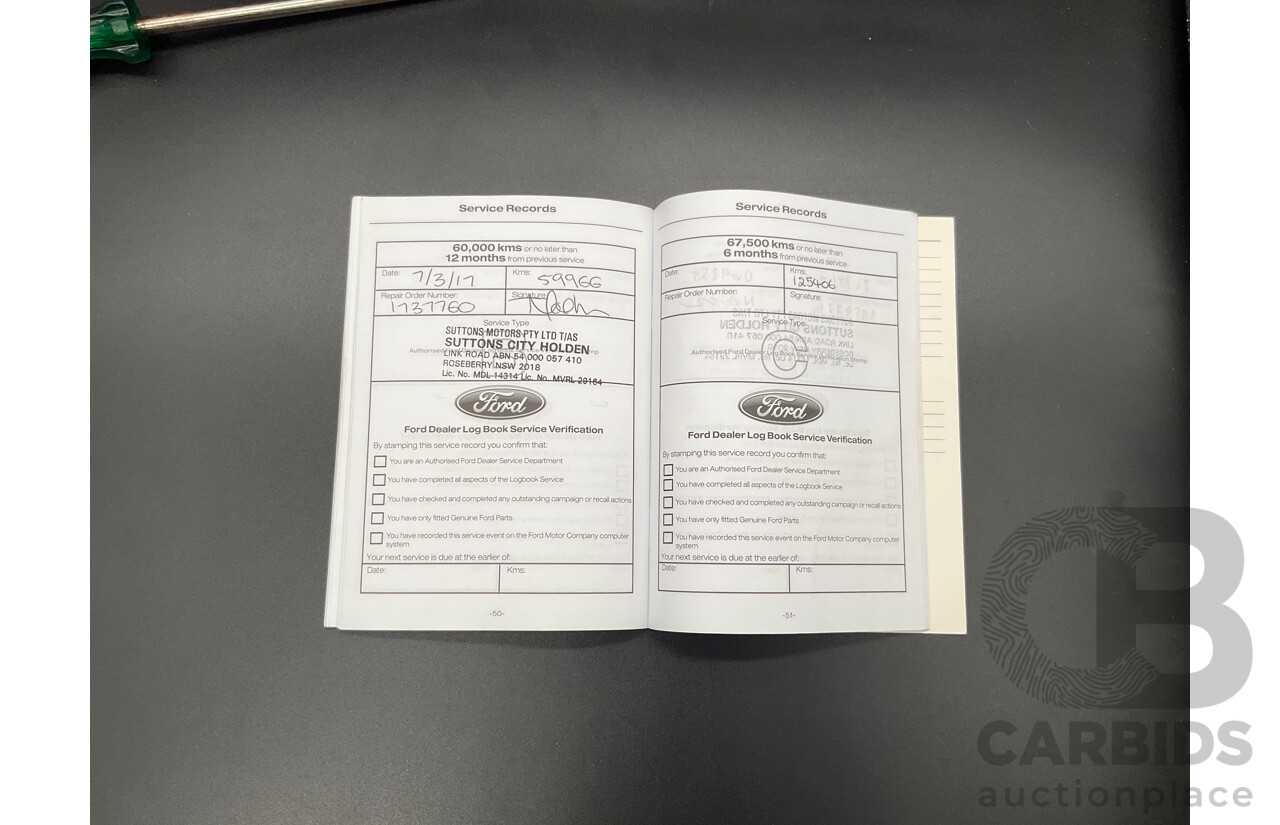 Service Records
60,000 kms or no later than
12 months from previous service
Date: 7/3/17 Kms: 59966
Repair Order Number: 1737760 Signature:
Service Type
SUTTONS MOTORS PTY LTD T/AS
SUTTONS CITY HOLDEN
LINK ROAD ABN 54 000 057 410
ROSEBERRY NSW 2018
Lic. No. MDL 14314 Lic. No. MVRL 29164
Ford
Ford Dealer Log Book Service Verification
By stamping this service record you confirm that:
You are an Authorised Ford Dealer Service Department
You have completed all aspects of the Logbook Service
You have checked and completed any outstanding campaign or recall actions
You have only fitted Genuine Ford Parts
You have recorded this service event on the Ford Motor Company computer
system
Your next service is due at the earlier of:
Date: Kms:
-50-
Service Records
67,500 kms or no later than
6 months from previous service
Date: Kms: 125406
Repair Order Number: Signature:
Service Type
Authorised Ford Dealer Log Book Service Verification Stamp
Ford
Ford Dealer Log Book Service Verification
By stamping this service record you confirm that:
You are an Authorised Ford Dealer Service Department
You have completed all aspects of the Logbook Service
You have checked and completed any outstanding campaign or recall actions
You have only fitted Genuine Ford Parts
You have recorded this service event on the Ford Motor Company computer
system
Your next service is due at the earlier of:
Date: Kms:
-51-
CB
CARBIDS
auctionplace